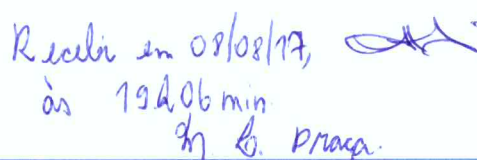 Recebi em 08/08/17,
às 19h06min
M. C. Praça.